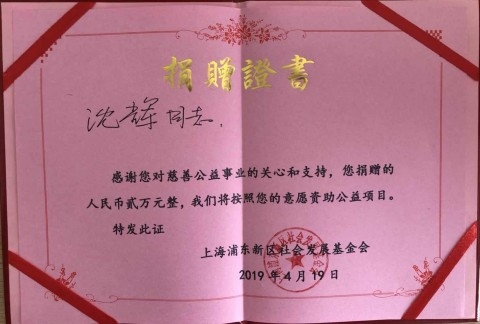 捐贈證書
沈辉同志:
感谢您对慈善公益事业的关心和支持,您捐赠的
人民币贰万元整,我们将按照您的意愿资助公益项目。
特发此证
上海浦东新区社会发展基金会
2019年4月19日